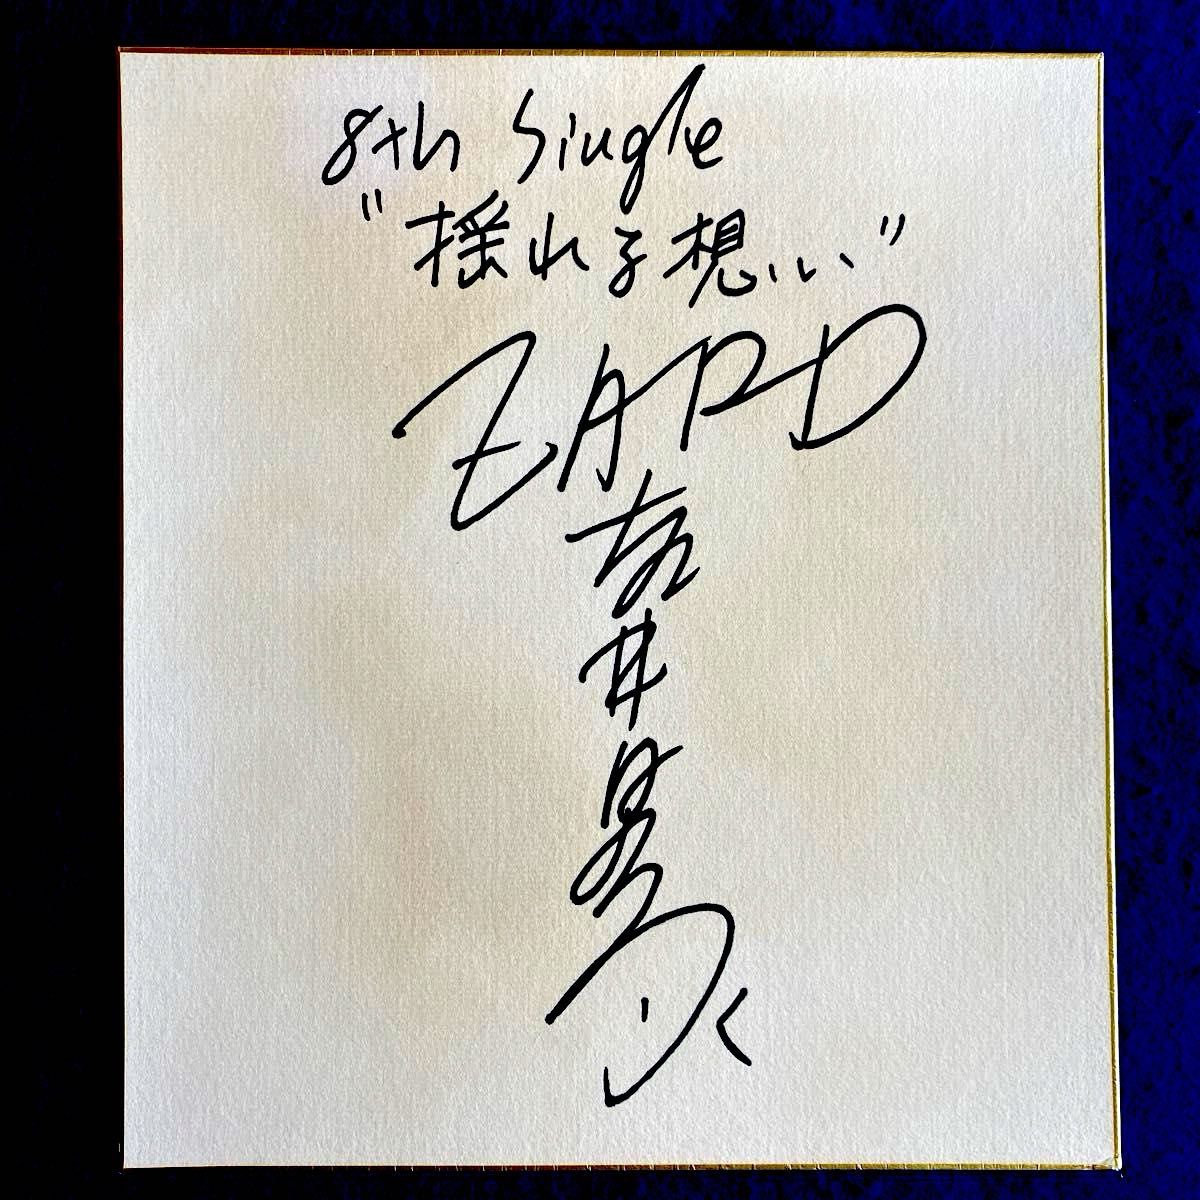 8th Single
"揺れる想い"
ZARD
坂井泉水